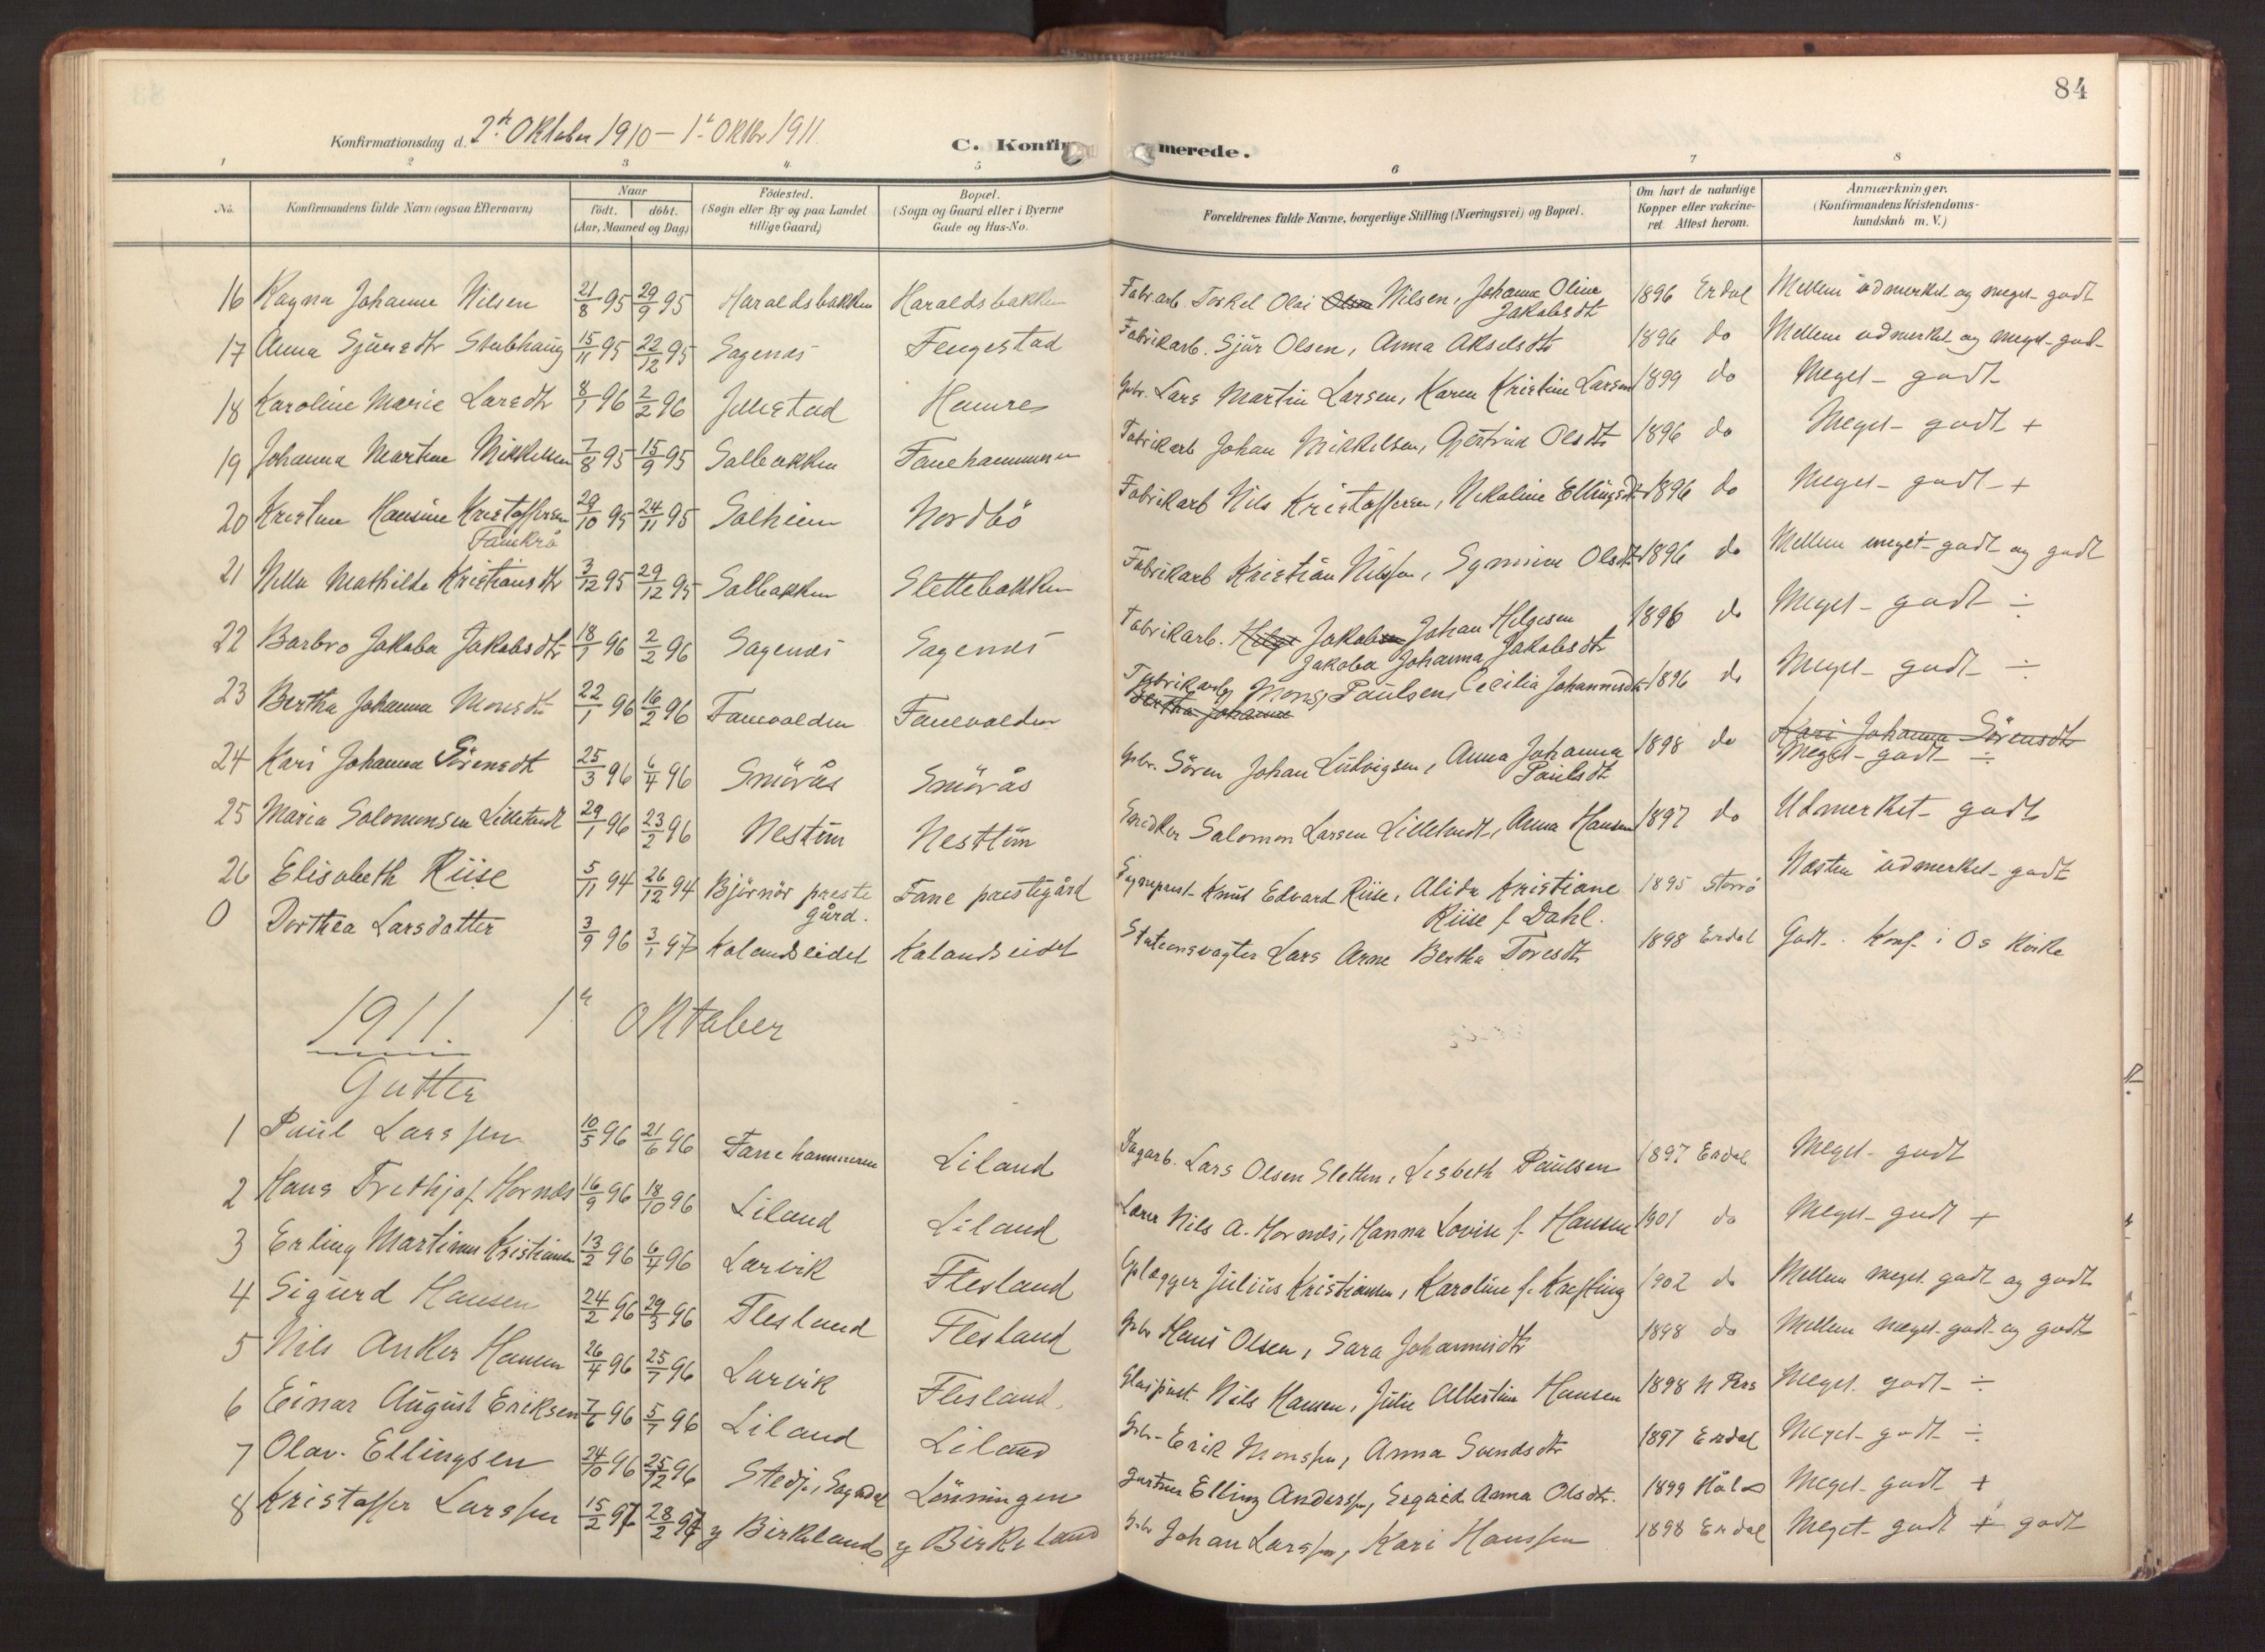 84
Konfirmationsdag d. 2den Oktober 1910 – 1ste Oktbr 1911.
C. Konfirmerede.
1 2 3 4 5 6 7 8
No. Konfirmandens fulde Navn (ogsaa Efternavn) Naar födt. döbt. (Aar, Maaned og Dag) Födested. (Sogn eller By og paa Landet tillige Gaard) Bopæl. (Sogn og Gaard eller i Byerne Gade og Hus-No. Forældrenes fulde Navne, borgerlige Stilling (Næringsvei) og Bopæl. Om havt de naturlige Kopper eller vakcineret. Attest herom. Anmærkninger. (Konfirmandens Kristendomskundskab m. V.)
16 Ragna Johanne Nilsen 21/8 95 29/9 95 Haraldsbakken Haraldsbakken Fabrarb. Torkel Olai Olsen Nilsen, Johanne Oline Jakobsdt 1896 Erdal Mellem udmerket og meget godt
17 Anna Sjursdtr Stubhaug 15/11 95 22/12 95 Sagenes Fengestad Fabrikarb. Sjur Olsen, Anna Akselsdtr 1896 do Mellem udmerket og meget god
18 Karoline Marie Larsdtr 8/1 96 2/2 96 Jillestad Hamre Gbr. Lars Martin Larsen, Karen Kristine Larsen 1899 do Meget godt
19 Johanna Martine Mikkelsen 7/8 95 15/9 95 Solbakken Fanehammeren Fabrikarb Johan Mikkelsen, Gjertrud Olsdtr 1896 do Meget godt +
20 Kristine Hansine Kristoffersen 29/10 95 24/11 95 Solheim Nordbö Fabrikarb Nils Kristoffersen, Nikoline Ellingsdt 1896 do Meget godt +
Fanekrå
21 Nella Mathilde Kristiansdtr 3/12 95 29/12 95 Solbakken Slettebakken Fabrikarb Kristian Nilssen, Synnive Olsdt 1896 do Mellem meget godt og godt
22 Barbro Jakoba Jakobsdtr 18/1 96 2/2 96 Sagenes Sagenes Fabrikarb. Helge Jakobsen Johan Helgesen Jakoba Johanna Jakobsdtr 1896 do Meget godt ÷
23 Bertha Johanna Monsdt 22/1 96 16/2 96 Fanevolden Fanevolden Fabrikarb Mons Paulsen, Cecilia Johannesdt 1896 do Meget godt ÷
Bertha Johanne
24 Kari Johanna Sörensdt 25/3 96 6/4 96 Smörås Smörås Gbr. Sören Johan Ludvigsen, Anna Johanna Paulsdt 1898 do Kari Johanna Sörensdtr Meget godt ÷
25 Maria Salomonsen Lilletvedt 29/1 96 23/2 96 Nestun Nesttun Snidker Salomon Larsen Lilletvedt, Anna Hansen 1897 do Udmerket godt
26 Elisabeth Riise 5/11 94 26/12 94 Björnör prestegård. Fane prestegård Sogneprest Knut Edvard Riise, Alida Kristiane Riise f. Dahl. 1895 Storö Næsten udmerket godt
0 Dorthea Larsdatter 3/9 96 3/1 97 Kalandseidet Kalandseidet Stationsvogter Lars Arne Bertha Toresdtr 1898 Erdal Godt. Konf. i Os Kirke
1911. 1ste Oktober
Gutter
1 Paul Larssen 10/5 96 21/6 96 Fanehammeren Liland Dagarb. Lars Olsen Sletten, Lisbeth Paulsen 1897 Erdal Meget godt
2 Hans Frithjof Hornæs 16/9 96 18/10 96 Liland Liland Lærer Nils A. Hornæs, Hanna Lovise f. Hansen 1901 do Meget godt +
3 Erling Martinus Kristiansen 13/2 96 6/4 96 Larvik Flesland Julius Kristiansen, Karoline f. Krefting 1902 do Mellem meget godt og godt
4 Sigurd Hansen 24/2 96 29/3 96 Flesland Flesland Gbr Hans Olsen, Sara Johannesdtr 1898 do Mellem meget godt og godt
5 Nils Anker Hansen 26/4 96 25/7 96 Larvik Flesland. Glaspust. Nils Hansen, Julie Albertine Hansen 1898 Meget godt ÷
6 Einar August Eriksen 7/6 96 5/7 96 Liland Liland Gbr. Erik Monssen, Anna Svendsdtr 1897 Erdal Meget godt ÷
7 Olav Ellingsen 24/10 96 25/12 96 Stedje, Sogndal Lönningen Gartner Elling Anderssen, Sigrid Anna Olsdtr. 1899 Meget godt +
8 Kristoffer Larssen 15/2 97 28/2 97 y Birkeland y Birkeland Gbr Johan Larssen, Kari Hanssen 1898 Erdal Meget godt + godt